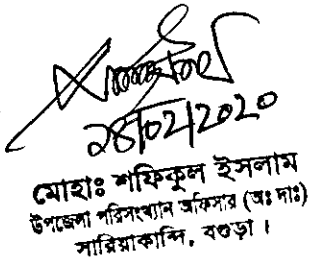 ২৪/02/2020
মোহাঃ শফিকুল ইসলাম
উপজেলা পরিসংখ্যান অফিসার (অঃ দাঃ)
সারিয়াকান্দি, বগুড়া।